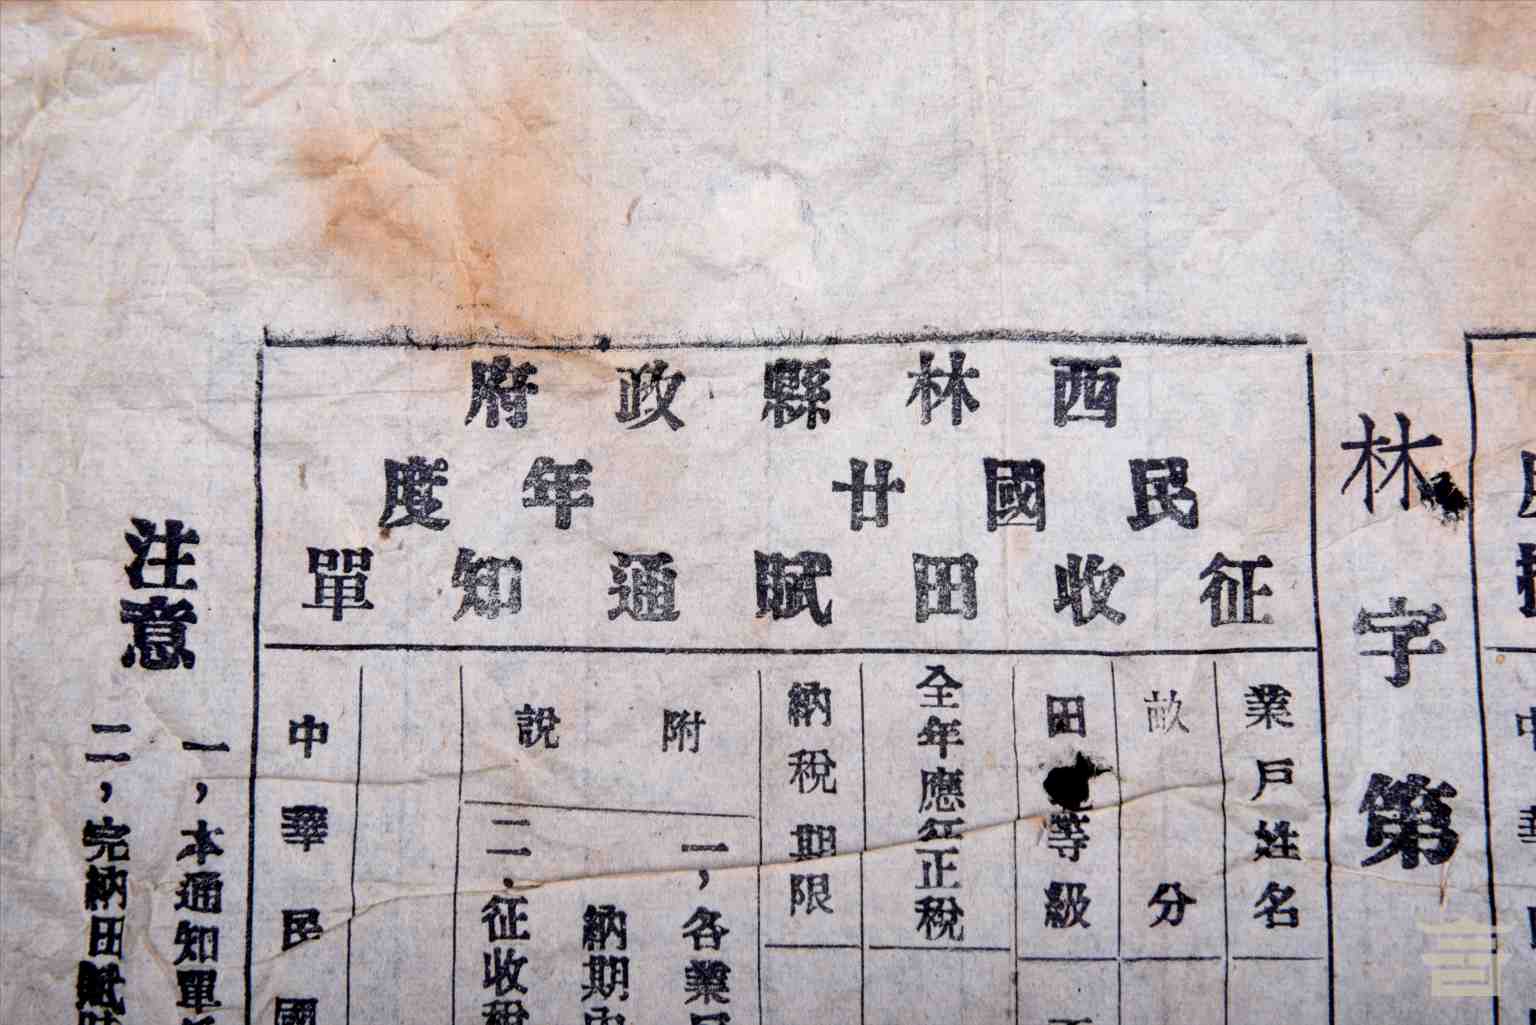 林字第
西林縣政府
民國廿　年度
征收田賦通知單
業戶姓名
畝分
田等級
全年應年正稅
納稅期限
附說
一，各業
納期
二．征收稅
中華民國
注意
一，本通知單
二，完納田賦